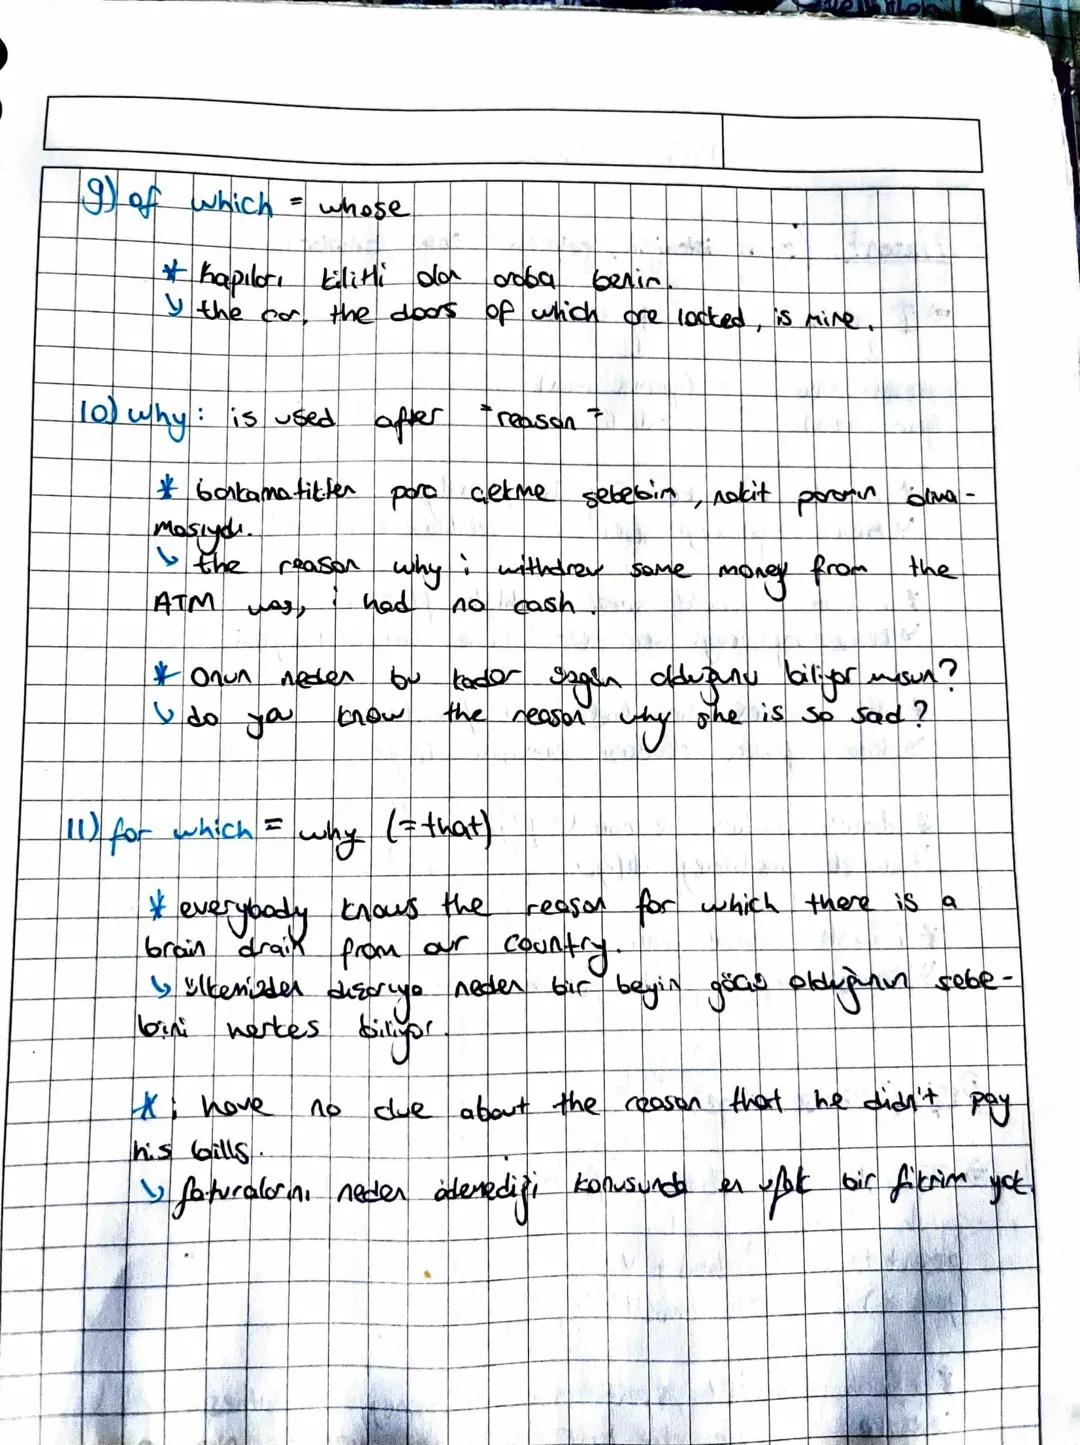 9) of which = whose
* kapıları kilitli olan araba benim.
↳ the car, the doors of which are locked, is mine.
10) why: is used after "reason"
* bankamatikten para çekme sebebim, nakit paramın olma-
masıydı.
↳ the reason why i withdrew some money from the
ATM was, i had no cash.
* Onun neden bu kadar üzgün olduğunu biliyor musun?
↳ do you know the reason why she is so sad?
11) for which = why (= that)
* everybody knows the reason for which there is a
brain drain from our country.
↳ ülkemizden dışarıya neden bir beyin göçü olduğunun sebe-
bini herkes biliyor.
* i have no clue about the reason that he didn't pay
his bills.
↳ faturalarını neden ödemediği konusunda en ufak bir fikrim yok.